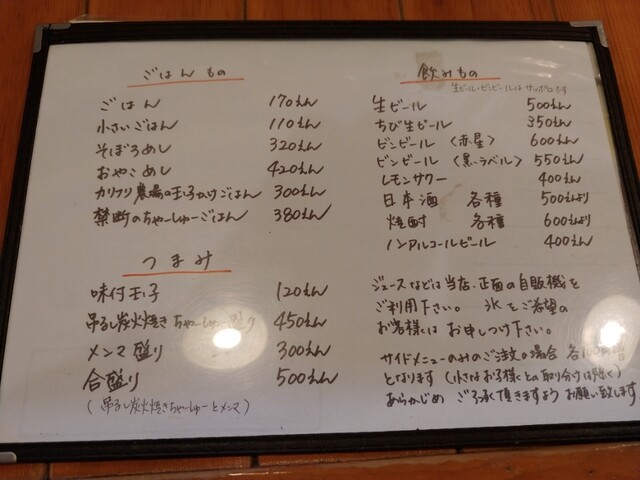 ごはんもの
ごはん 170えん
小さいごはん 110えん
そぼろめし 320えん
おやこめし 420えん
カリフリ農場の玉子かけごはん 300えん
禁断のちゃーしゅーごはん 380えん
つまみ
味付玉子 120えん
吊るし炭火焼きちゃーしゅー盛り 450えん
メンマ盛り 300えん
合盛り 500えん
(吊るし炭火焼きちゃーしゅーとメンマ)
飲みもの
生ビール・ビンビールは サッポロです
生ビール 500えん
ちび生ビール 350えん
ビンビール〈赤星〉 600えん
ビンビール〈黒ラベル〉 550えん
レモンサワー 400えん
日本酒 各種 500えんより
焼酎 各種 600えんより
ノンアルコールビール 400えん
ジュースなどは当店、正面の自販機を
ご利用下さい。 氷をご希望の
お客様は お申しつけ下さい。
サイドメニューのみのご注文の場合 各100円
となります (小さなお子様との取り分けは除く)
あらかじめ ご了承頂きますよう お願い致します